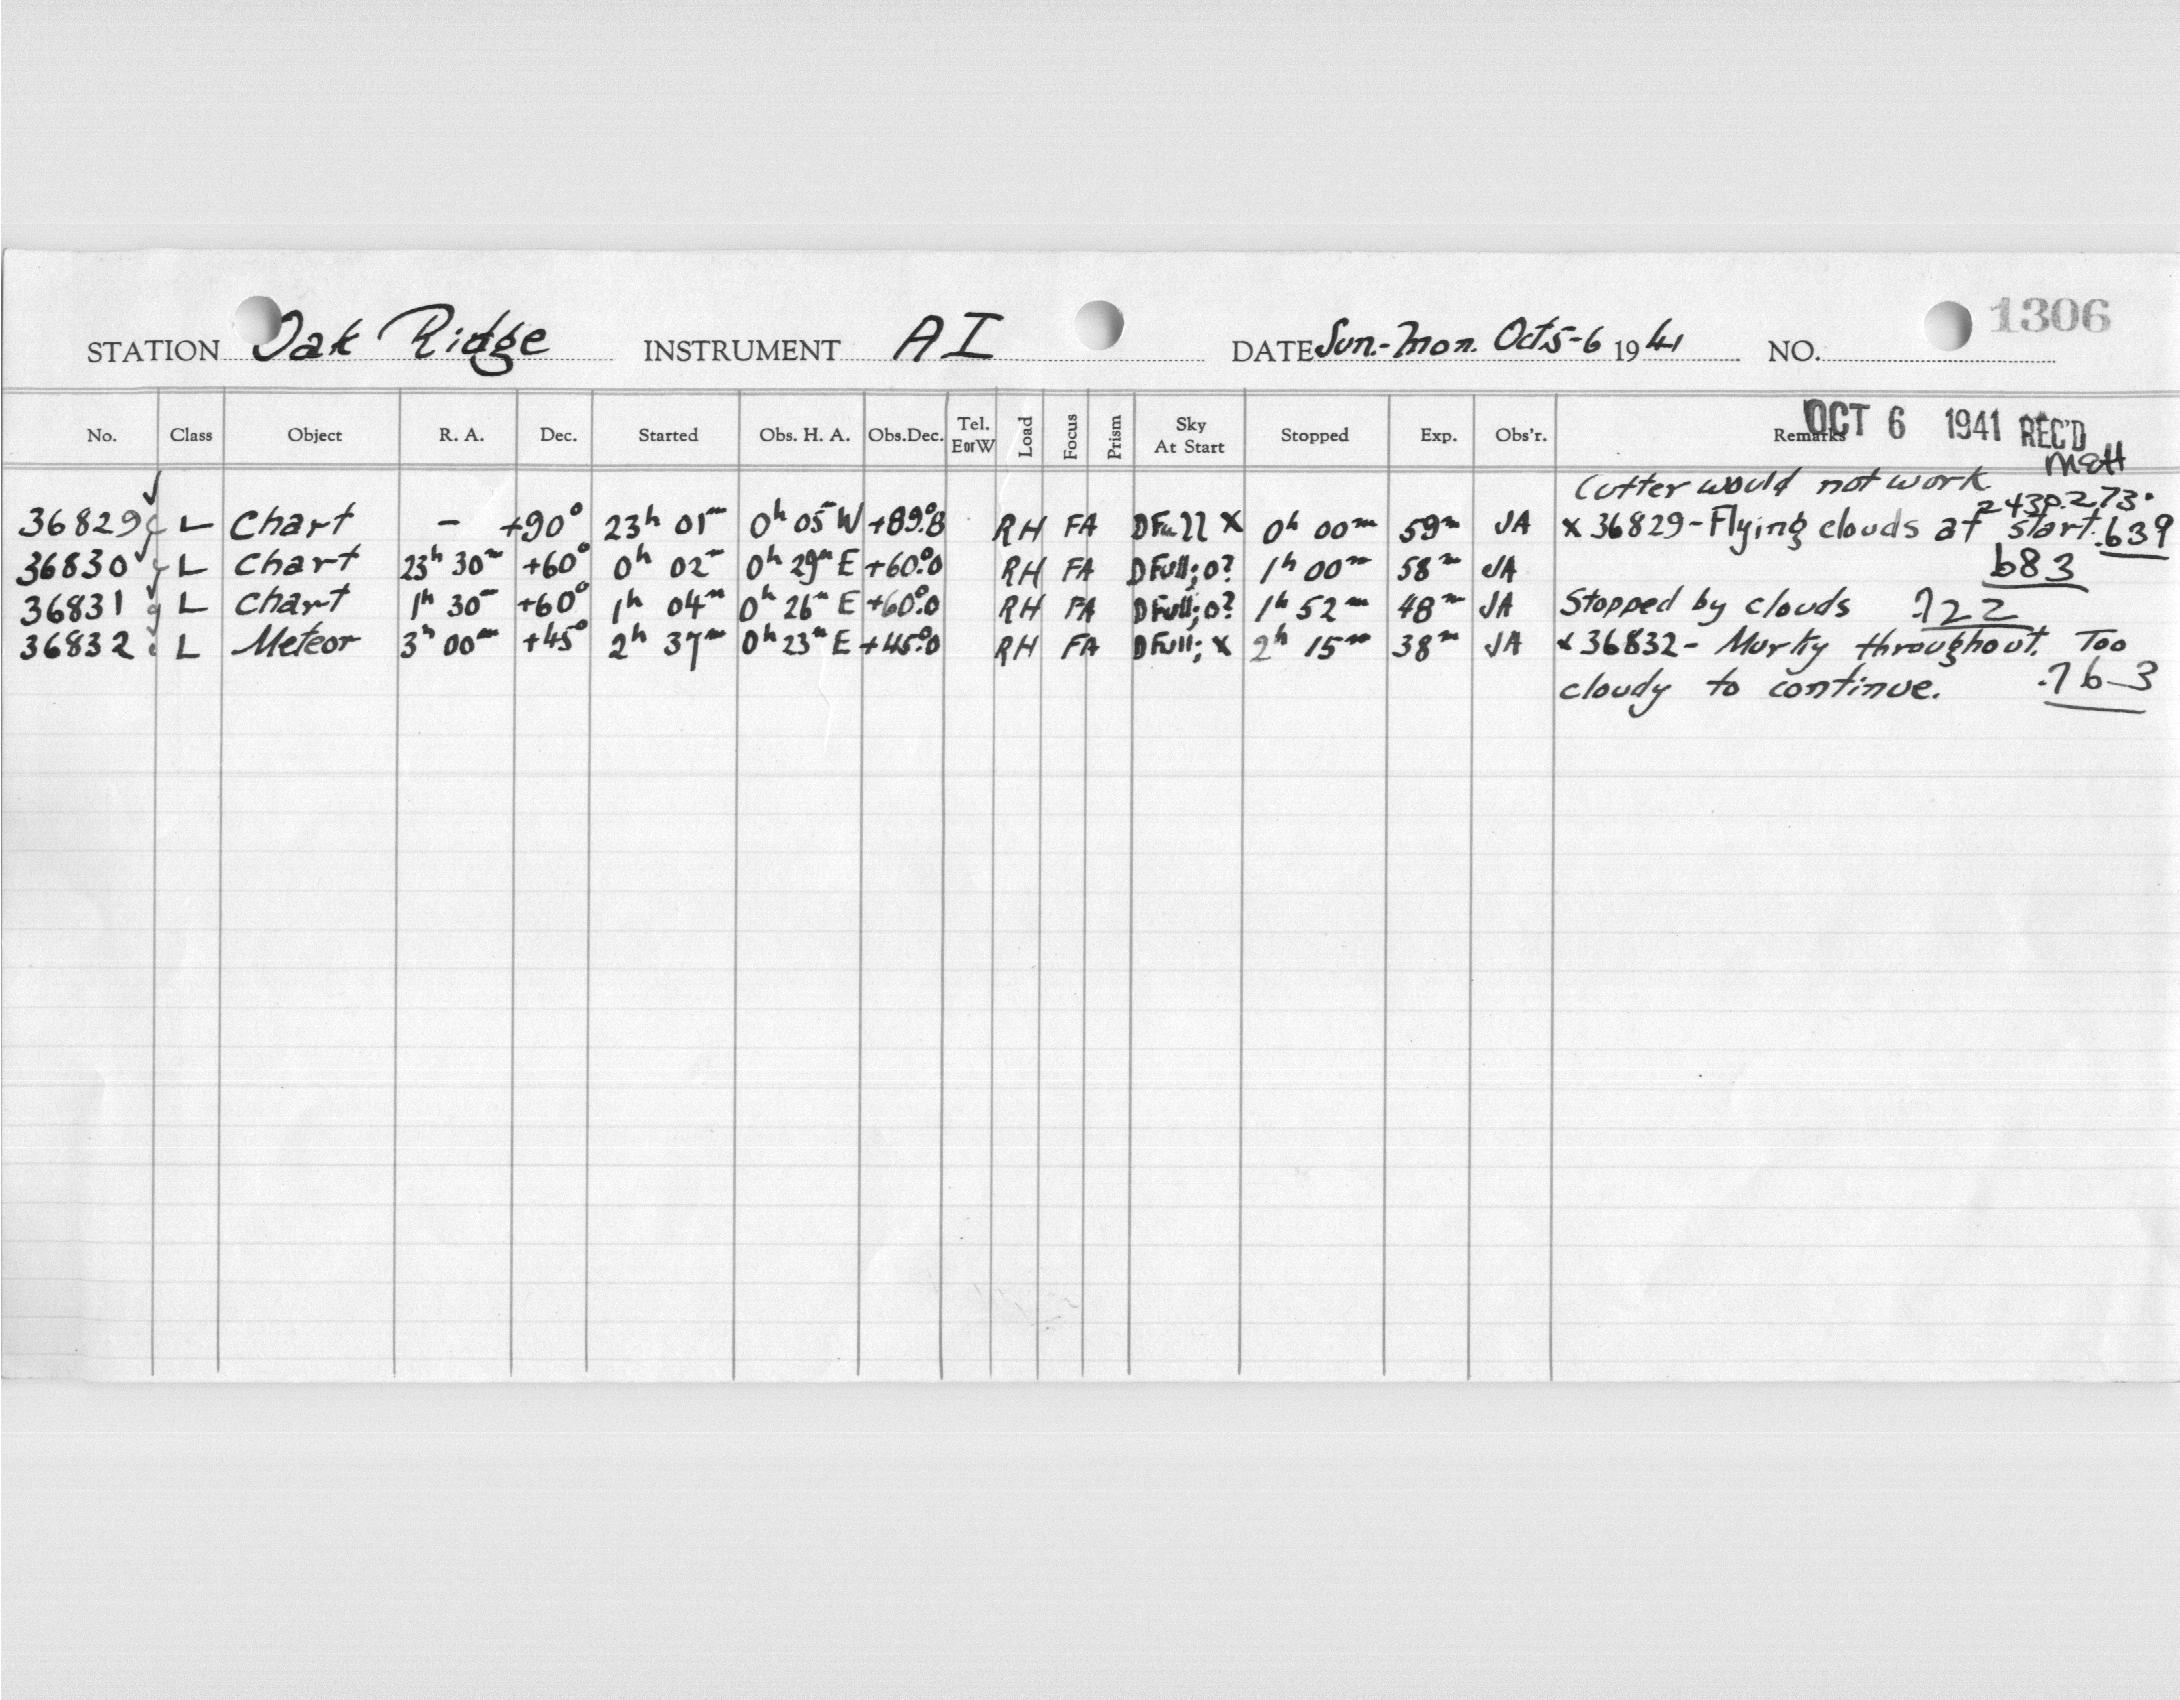 1306
STATION Oak Ridge INSTRUMENT AI DATE Sun.-Mon. Oct 5-6 1941 NO.
No. Class Object R. A. Dec. Started Obs. H. A. Obs.Dec. Tel. E or W Load Focus Prism Sky At Start Stopped Exp. Obs'r. Remarks
OCT 6 1941 REC'D
Cutter would not work
36829 L Chart - +90° 23h 01m 0h 05 W +89.°8 RH FA D Full X 0h 00m 59m JA x 36829 - Flying clouds at start. .639
36830 L Chart 23h 30m +60° 0h 02m 0h 29m E +60.°0 RH FA D Full; o? 1h 00m 58m JA 683
36831 L Chart 1h 30m +60° 1h 04m 0h 26m E +60.°0 RH FA D Full; o? 1h 52m 48m JA Stopped by clouds .722
36832 L Meteor 3h 00m +45° 2h 37m 0h 23m E +45.°0 RH FA D Full; X 2h 15m 38m JA x 36832 - Murky throughout. Too
cloudy to continue. .763